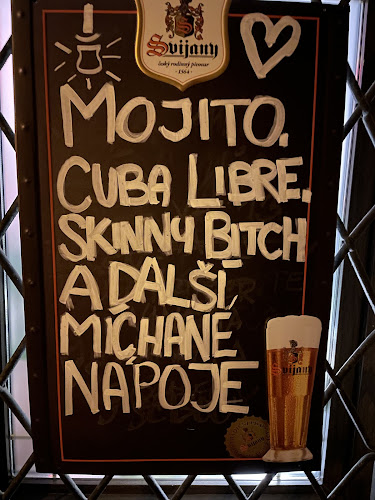 Svijany
český rodinný pivovar
· 1564 ·
MOJITO,
CUBA LIBRE,
SKINNY BITCH
A DALŠÍ
MÍCHANÉ
NÁPOJE
Svijany